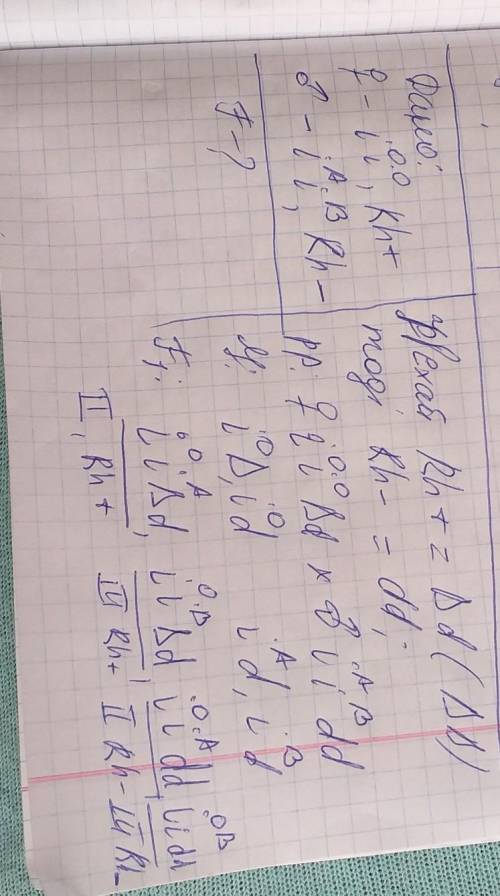 Дано:
♀ - i⁰i⁰, Rh+
♂ - iᴬiᴮ, Rh-
F - ?
Нехай Rh+ = Dd (DD)
тоді Rh- = dd;
PP: ♀ i⁰i⁰Dd × ♂ iᴬiᴮ dd
G: i⁰D, i⁰d iᴬd, iᴮd
F₁: i⁰iᴬDd, i⁰iᴮDd, i⁰iᴬdd, i⁰iᴮdd
II, Rh+ III Rh+ II Rh- III Rh-